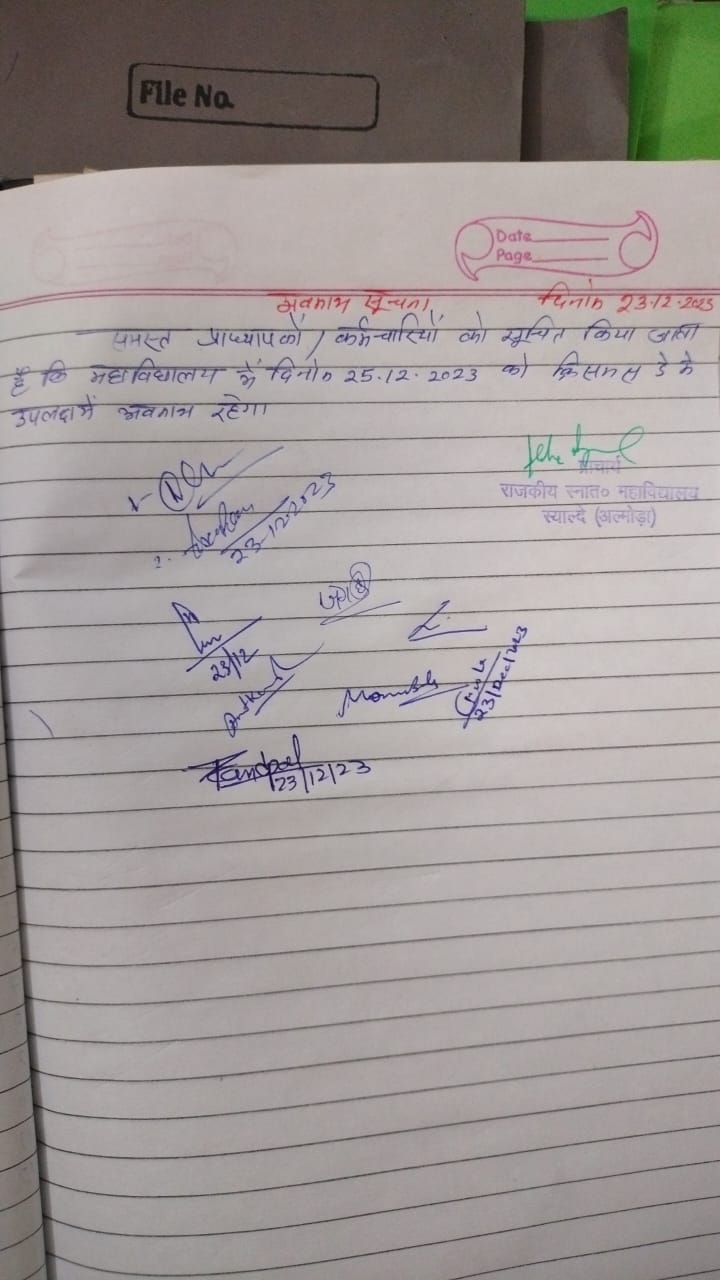 File No.
Date
Page
अवकाश सूचना दिनांक 23.12.2023
समस्त प्राध्यापकों / कर्मचारियों को सूचित किया जाता
है कि महाविद्यालय में दिनांक 25.12.2023 को क्रिसमस डे के
उपलक्ष में अवकाश रहेगा।
प्राचार्य
राजकीय स्नात० महाविद्यालय
स्याल्दे (अल्मोड़ा)
1.
2.
23-12-2023
23/12
23/Dec/2023
23/12/23